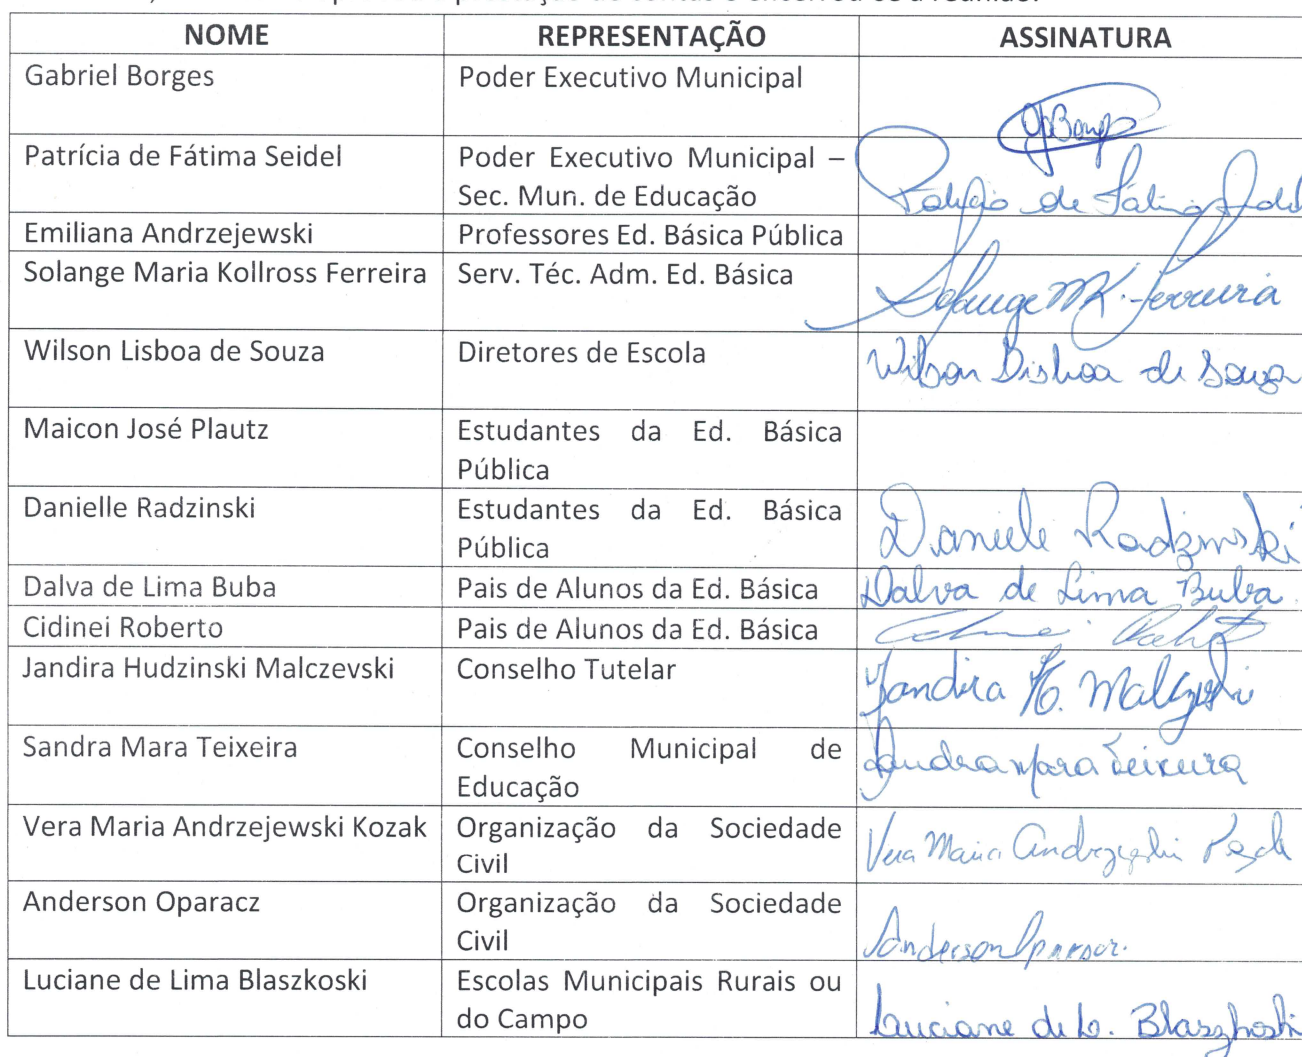 NOME REPRESENTAÇÃO ASSINATURA
Gabriel Borges Poder Executivo Municipal
GBorges
Patrícia de Fátima Seidel Poder Executivo Municipal –
Sec. Mun. de Educação Patrícia de Fátima Seidel
Emiliana Andrzejewski Professores Ed. Básica Pública
Solange Maria Kollross Ferreira Serv. Téc. Adm. Ed. Básica Solange M K. Ferreira
Wilson Lisboa de Souza Diretores de Escola Wilson Lisboa de Souza
Maicon José Plautz Estudantes da Ed. Básica
Pública
Danielle Radzinski Estudantes da Ed. Básica
Pública Daniele Radzinski
Dalva de Lima Buba Pais de Alunos da Ed. Básica Dalva de Lima Buba.
Cidinei Roberto Pais de Alunos da Ed. Básica
Jandira Hudzinski Malczevski Conselho Tutelar Jandira H.
Sandra Mara Teixeira Conselho Municipal de
Educação Sandra Mara Teixeira
Vera Maria Andrzejewski Kozak Organização da Sociedade
Civil Vera Maria
Anderson Oparacz Organização da Sociedade
Civil Anderson
Luciane de Lima Blaszkoski Escolas Municipais Rurais ou
do Campo Luciane de L. Blaszkoski